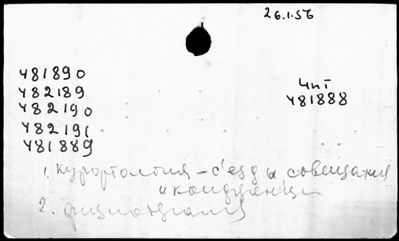 26.1.56
481890
482189
482190
482191
481889
Чит
481888
1. курортология – съезды совещания
и конференци
2. физиотерапия